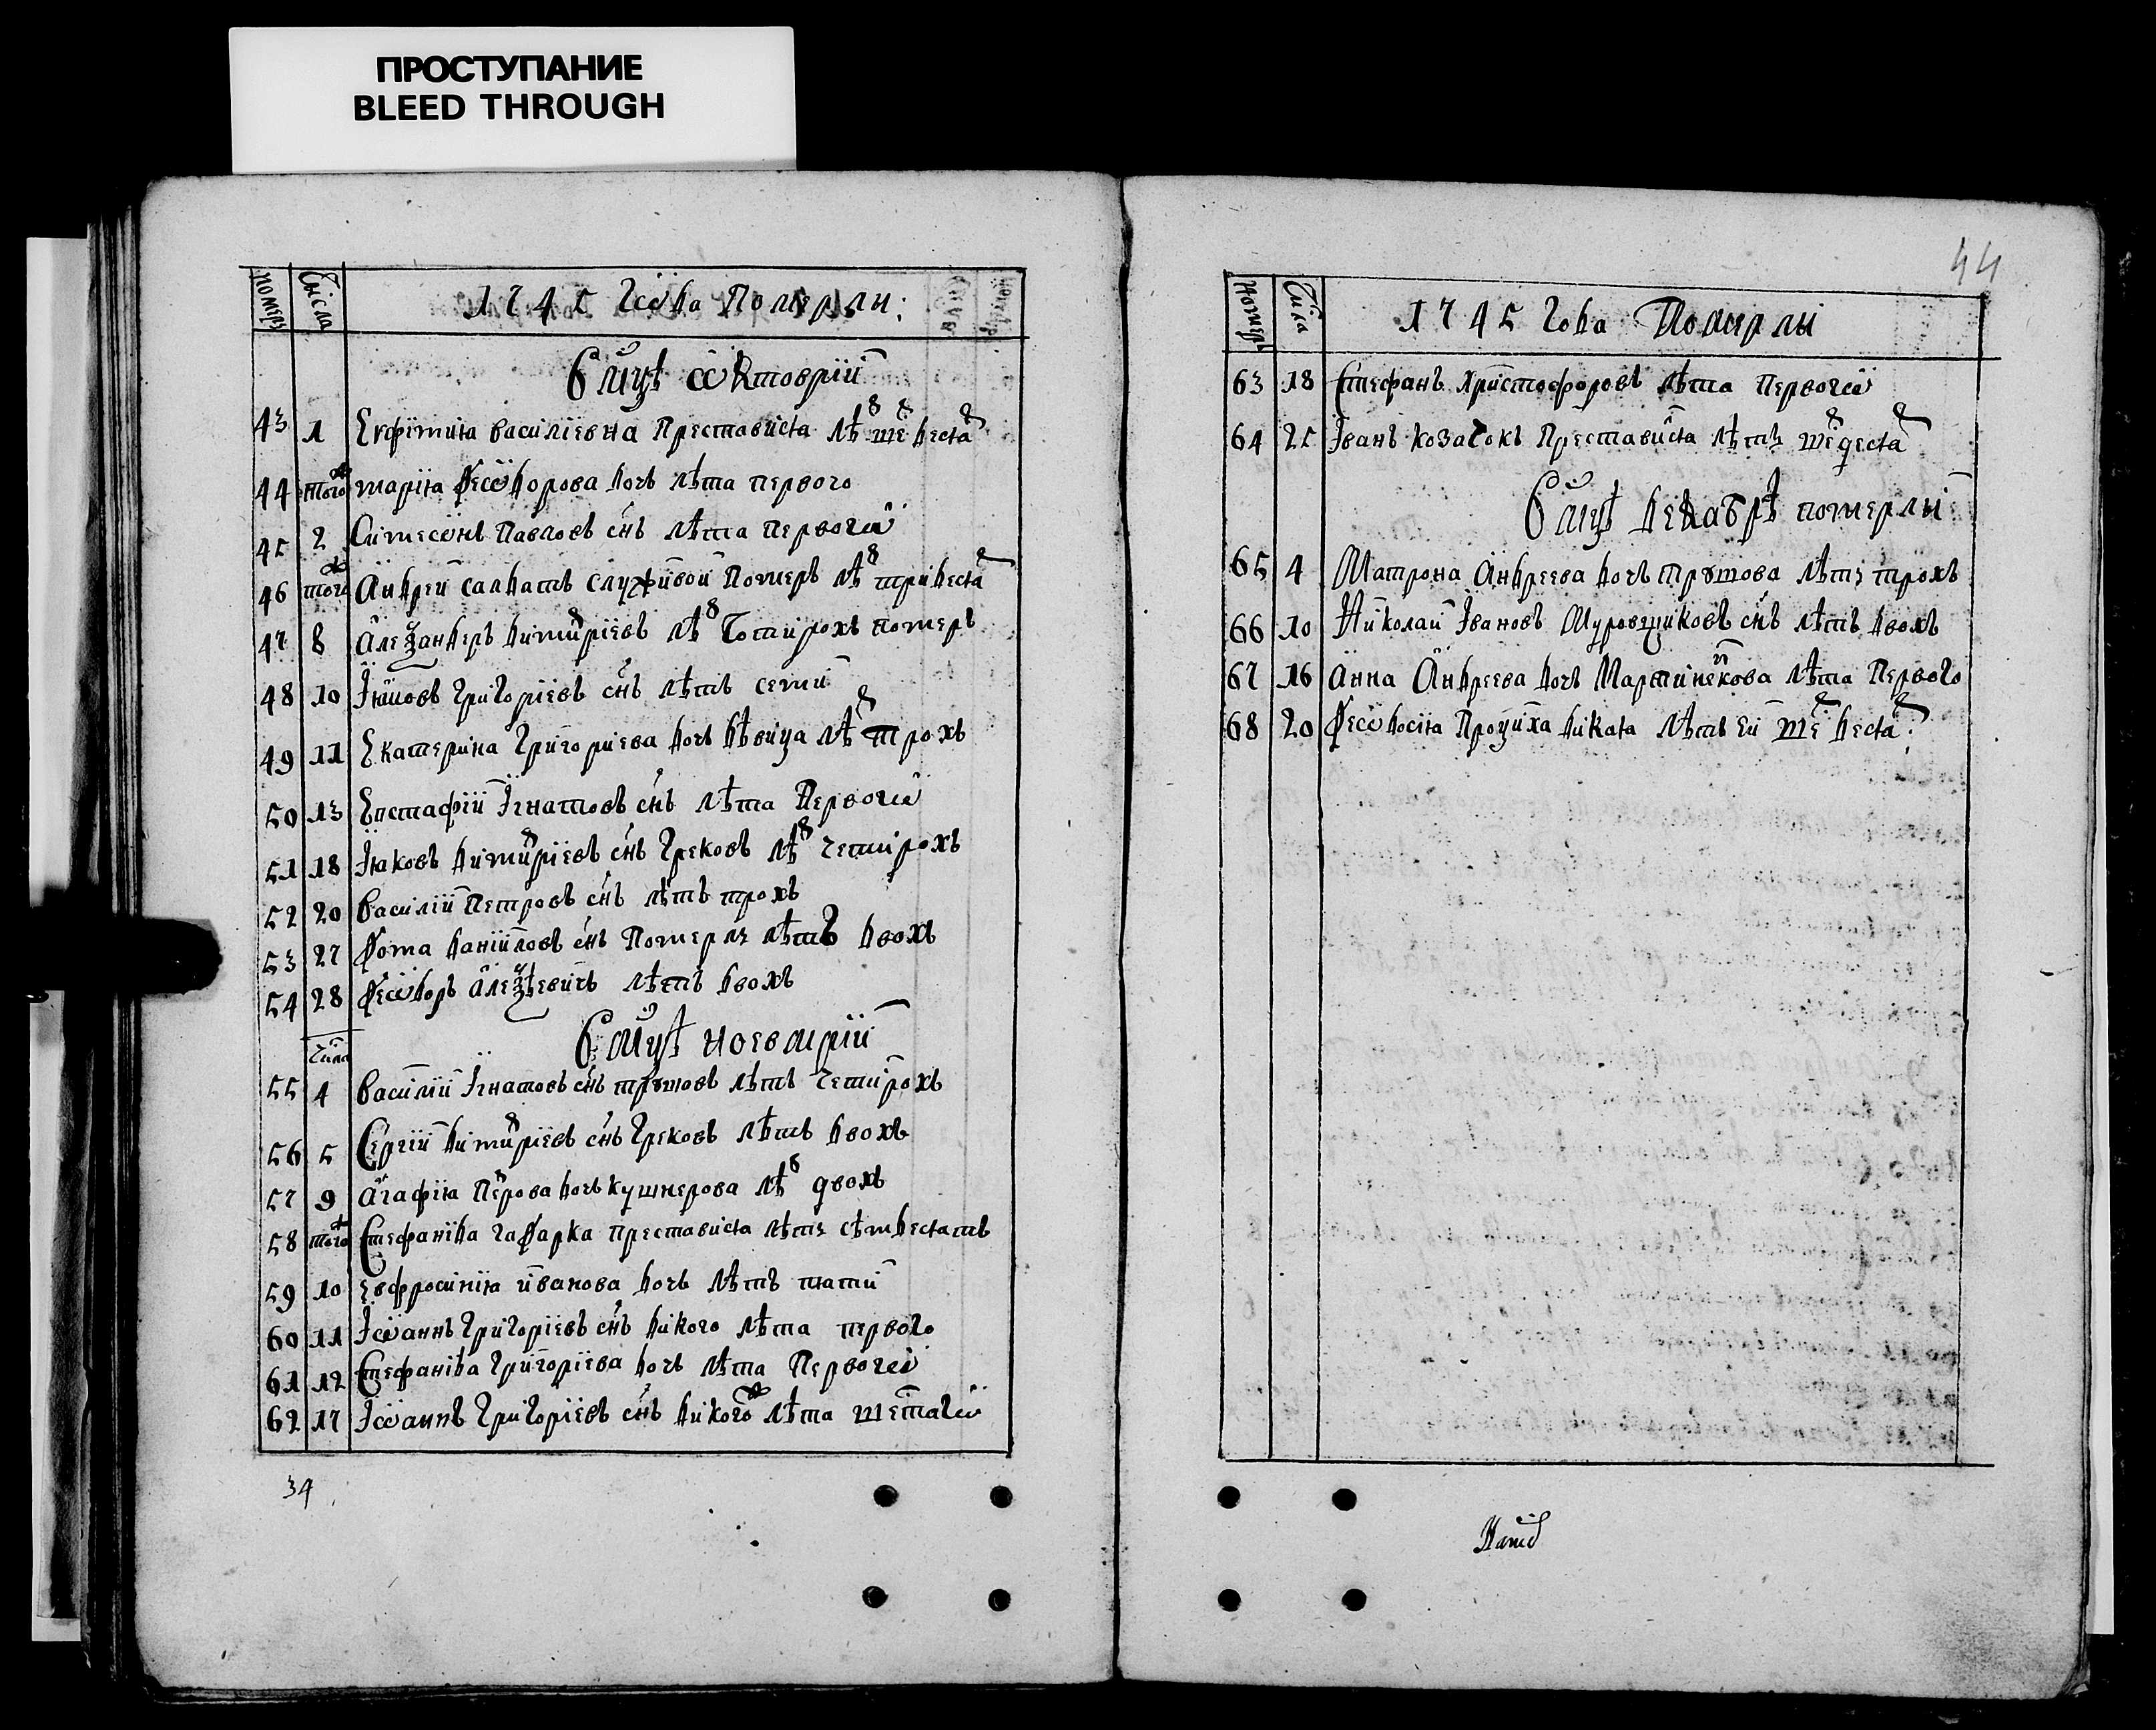 ПРОСТУПАНИЕ
BLEED THROUGH
44
номеръ Числа 1745 Гѡда Померли:
В мцѣ ѡктоврїи
43 1 Евфимїя василїевна Преставися лѣт шєсдеся т
44 тогож марїя Феѡдорова дочь лѣта первого
45 2 Симеѡнъ Павловъ снъ лѣта первогѡ
46 тогож Андрей салдатъ служивой Померъ лѣт тридеся т
47 8 Алеѯандеръ димитрїевъ лѣт Чотирохъ померъ
48 10 Іяковъ Григорїевъ снъ лѣтъ семи
49 11 Екатерина Григориева дочь дѣвица лѣт трохъ
50 13 Евстафїй Ігнатовъ снъ лѣта Первогѡ
51 18 Іяковъ димитрїевъ снъ Грековъ лѣт четирохъ
52 20 Василїй Петровъ снъ лѣтъ трохъ
53 27 Фома данїиловъ снъ Померлъ лѣтъ двохъ
54 28 Феѡдоръ Алеѯѣевичъ лѣтъ двохъ
Числа В мцѣ ноемврїи
55 4 Василїй Ігнатовъ снъ трутовъ лѣтъ четирохъ
56 5 Сергїй димитрїевъ снъ Грековъ лѣтъ двохъ
57 9 Агафїя Петрова дочь кушнерова лѣт двохъ
58 тогож Стефанїда гафарка преставися лѣтъ сѣмдесятъ
59 10 Евфросинїя иванова дочь лѣтъ пяти
60 11 Іѡаннъ Григорїевъ снъ дикого лѣта первого
61 12 Стефанїда Григорїева дочь лѣта Первогѡ
62 17 Іѡаннъ Григорїевъ снъ дикогож лѣта шестагѡ
34
Номеръ Числа 1745 Года Померли
63 18 Стефанъ христофоровъ лѣта Первогѡ
64 25 Іванъ козачокъ Преставися лѣтъ шєсдеся т
В мцѣ декабрѣ померли
65 4 Матрона Андреева дочь трутова лѣтъ трохъ
66 10 Николай Івановъ Муровщиковъ снъ лѣтъ двохъ
67 16 Анна Андреева дочь Мартиненкова лѣта Первого
68 20 Феѡдосїя Процїха дикая лѣтъ ей шєсдеся т: